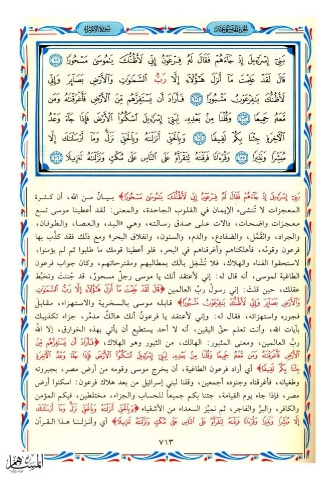 سورة الإسراء
بَنِىٓ إِسْرَٰٓءِيلَ إِذْ جَآءَهُمْ فَقَالَ لَهُۥ فِرْعَوْنُ إِنِّى لَأَظُنُّكَ يَٰمُوسَىٰ مَسْحُورًا ﴿١٠١﴾
قَالَ لَقَدْ عَلِمْتَ مَآ أَنزَلَ هَٰٓؤُلَآءِ إِلَّا رَبُّ ٱلسَّمَٰوَٰتِ وَٱلْأَرْضِ بَصَآئِرَ وَإِنِّى
لَأَظُنُّكَ يَٰفِرْعَوْنُ مَثْبُورًا ﴿١٠٢﴾ فَأَرَادَ أَن يَسْتَفِزَّهُم مِّنَ ٱلْأَرْضِ فَأَغْرَقْنَٰهُ وَمَن
مَّعَهُۥ جَمِيعًا ﴿١٠٣﴾ وَقُلْنَا مِنۢ بَعْدِهِۦ لِبَنِىٓ إِسْرَٰٓءِيلَ ٱسْكُنُوا۟ ٱلْأَرْضَ فَإِذَا جَآءَ وَعْدُ
ٱلْءَاخِرَةِ جِئْنَا بِكُمْ لَفِيفًا ﴿١٠٤﴾ وَبِٱلْحَقِّ أَنزَلْنَٰهُ وَبِٱلْحَقِّ نَزَلَ وَمَآ أَرْسَلْنَٰكَ إِلَّا
مُبَشِّرًا وَنَذِيرًا ﴿١٠٥﴾ وَقُرْءَانًا فَرَقْنَٰهُ لِتَقْرَأَهُۥ عَلَى ٱلنَّاسِ عَلَىٰ مُكْثٍ وَنَزَّلْنَٰهُ تَنزِيلًا ﴿١٠٦﴾
بَنِي إِسْرَائِيلَ إِذْ جَاءَهُمْ فَقَالَ لَهُ فِرْعَوْنُ إِنِّي لَأَظُنُّكَ يَا مُوسَى مَسْحُورًا﴾ بيانٌ من الله، أن كثرة
المعجزات لا تُنشىء الإيمان في القلوب الجاحدة، والمعنى: لقد أعطينا موسى تسع
معجزات واضحات، دالات على صدق رسالته، وهي «اليد، والعصا، والطوفان،
والجراد، والقُمَّل، والضفادع، والدم، والسنون، وانفلاق البحر» ومع ذلك فقد كذَّب بها
فرعون وقومُه، فأهلكناهم وأغرقناهم في البحر، فلو أعطينا قومك ما طلبوا ثم لم يؤمنوا،
لاستحقوا الفناء والهلاك، فلا تُشغل بالك بمطاليبهم ومقترحاتهم، وكان جواب فرعون
الطاغية لموسى، أنه قال له: إني لأعتقد أنك يا موسى رجلٌ مسحورٌ، قد جُننت وتخبَّط
عقلك، حين قلتَ: إني رسول ربِّ العالمين ﴿قَالَ لَقَدْ عَلِمْتَ مَا أَنْزَلَ هَؤُلَاءِ إِلَّا رَبُّ السَّمَوَاتِ
وَالْأَرْضِ بَصَائِرَ وَإِنِّي لَأَظُنُّكَ يَا فِرْعَوْنُ مَثْبُورًا﴾ قابله موسى بالسخرية والاستهزاء، مقابلَ
فجوره واستهزائه، فقال له: وإني لأعتقد يا فرعونُ أنك هالكٌ مدمَّر، جزاء تكذيبك
بآيات الله، وأنت تعلم حقَّ اليقين، أنه لا أحد يستطيع أن يأتي بهذه الخوارق، إلا الله
ربُّ العالمين، ومعنى المثبور: الهالك، من الثبور وهو الهلاك، ﴿فَأَرَادَ أَنْ يَسْتَفِزَّهُمْ مِنَ
الْأَرْضِ فَأَغْرَقْنَاهُ وَمَنْ مَعَهُ جَمِيعًا وَقُلْنَا مِنْ بَعْدِهِ لِبَنِي إِسْرَائِيلَ اسْكُنُوا الْأَرْضَ فَإِذَا جَاءَ وَعْدُ الْآخِرَةِ
جِئْنَا بِكُمْ لَفِيفًا﴾ أي أراد فرعون الطاغية، أن يخرج موسى وقومه من أرض مصر، بجبروته
وطغيانه، فأغرقناه وجنوده أجمعين، وقلنا لبني إسرائيل من بعد هلاك فرعون: اسكنوا أرض
مصر، فإذا جاء يوم القيامة، جئنا بكم جميعاً للحساب والجزاء، مختلطين، فيكم المؤمن
والكافر، والبرُّ والفاجر، ثم نميِّز السعداء من الأشقياء ﴿وَبِالْحَقِّ أَنْزَلْنَاهُ وَبِالْحَقِّ نَزَلَ وَمَا أَرْسَلْنَاكَ
إِلَّا مُبَشِّرًا وَنَذِيرًا وَقُرْآنًا فَرَقْنَاهُ لِتَقْرَأَهُ عَلَى النَّاسِ عَلَى مُكْثٍ وَنَزَّلْنَاهُ تَنْزِيلًا﴾ أي وأنزلنا هذا القرآن
٧١٣